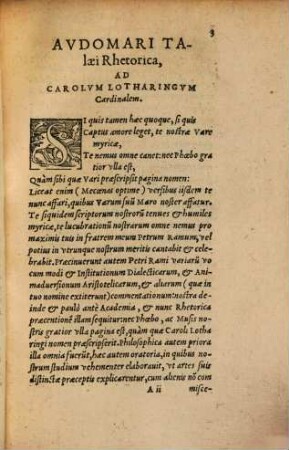 3
AVDOMARI TA-
læi Rhetorica,
AD
CAROLVM LOTHARINGVM
Cardinalem.
SI quis tamen hæc quoque, si quis
Captus amore leget, te nostræ Vare
myricæ,
Te nemus omne canet: nec Phœbo gra
tior vlla est,
Quàm sibi quæ Vari præscripsit pagina nomen:
Liceat enim (Mecœnas optime) versibus iisdem te
nunc affari, quibus Varum suũ Maro noster affatur.
Te siquidem scriptorum nostrorũ tenues & humiles
myricæ, te lucubrationũ nostrarum omne nemus pro
maximis tuis in fratrem meum Petrum Ramum, vel
potius in vtrunque nostrum meritis cantabit & cele-
brabit. Præcinuerunt autem Petri Rami variarũ vo
cum modi & Institutionum Dialecticarum, & Ani-
maduersionum Aristotelicarum, & aliarum (quæ in
tuo nomine extiterunt) commentationum: nostra de-
inde & paulò ante Academia, & nunc Rhetorica
præcentionē illam sequitur: nec Phœbo, ac Musis no-
stris gratior vlla pagina est, quàm quæ Caroli Lotha
ringi nomen præscripserit. Philosophica autem priora
illa omnia fuerũt, hæc autem oratoria, in quibus no-
strum studium vehementer elaborauit, vt artes suis
distinctæ præceptis explicarentur, cum alienis nõ com
A ii misce-